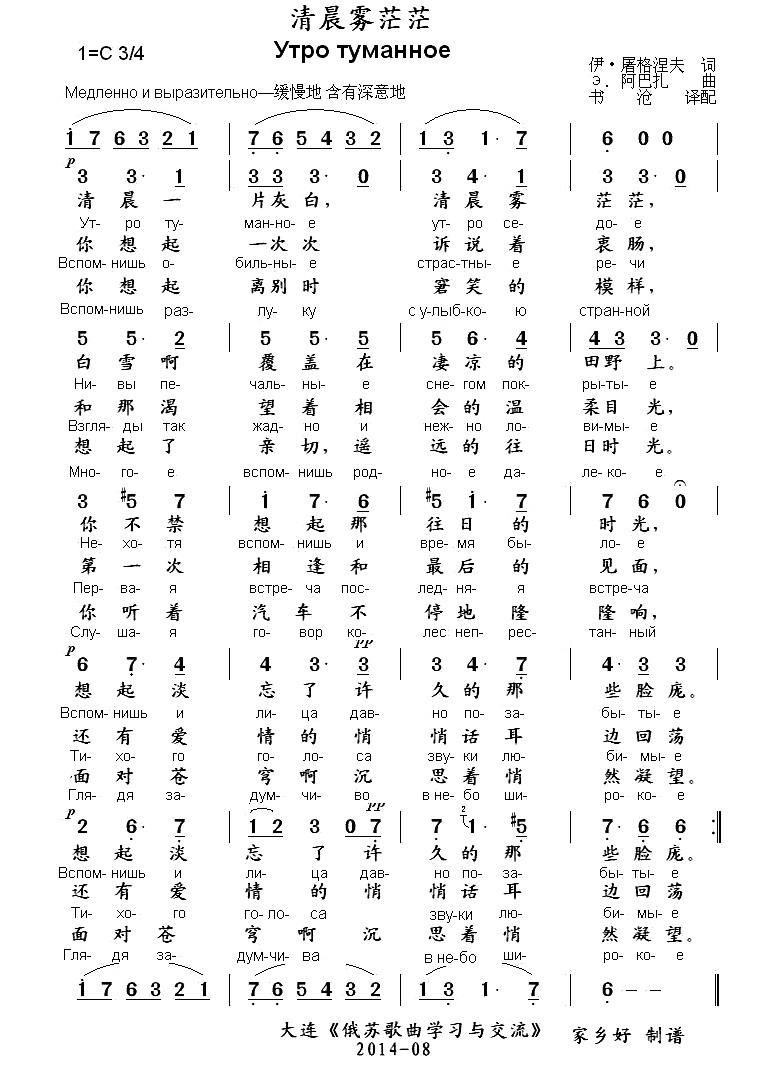 清晨雾茫茫
Утро туманное
1=C 3/4
伊·屠格涅夫 词
Э. 阿巴扎 曲
书沧 译配
Медленно и выразительно—缓慢地 含有深意地
i 7 6 3 2 1 | 7 6 5 4 3 2 | 1 3 1· 7 | 6 0 0
p
3 3· 1 | 3 3 3· 0 | 3 4· 1 | 3 3· 0
清 晨 一 片灰白, 清 晨 雾 茫 茫,
Ут- ро ту- ман-но- е ут- ро се- до- е
你 想 起 一次次 诉 说 着 衷 肠,
Вспом-нишь о- биль-ны- е страс-тны- е ре- чи
你 想 起 离别时 窘 笑 的 模 样,
Вспом-нишь раз- лу- ку с у-лыб-ко- ю стран-ной
5 5· 2 | 5 5· 5 | 5 6· 4 | 4 3 3· 0
白 雪 啊 覆 盖 在 凄 凉 的 田野 上。
Ни- вы пе- чаль- ны- е сне- гом пок- ры-ты- е
和 那 渴 望 着 相 会 的 温 柔目 光,
Взгля-ды так жад- но и неж-но ло- ви-мы- е
想 起 了 亲 切, 遥 远 的 往 日时 光。
Мно- го- е вспом-нишь род- но- е да- ле- ко- е
3 #5 7 | i 7· 6 | #5 i· 7 | 7 6 0
你 不 禁 想 起 那 往 日 的 时 光,
Не- хо- тя вспом-нишь и вре- мя бы- ло- е
第 一 次 相 逢 和 最 后 的 见 面,
Пер- ва- я встре- ча пос- лед- ня- я встре-ча
你 听 着 汽 车 不 停 地 隆 隆 响,
Слу- ша- я го- вор ко- лес неп- рес- тан- ный
p pp
6 7· 4 | 4 3· 3 | 3 4· 7 | 4· 3 3
想 起 淡 忘 了 许 久 的 那 些 脸 庞。
Вспом-нишь и ли- ца дав- но по- за- бы- ты- е
还 有 爱 情 的 悄 悄 话 耳 边 回 荡
Ти- хо- го го- ло- са зву- ки лю- би- мы- е
面 对 苍 穹 啊 沉 思 着 悄 然 凝 望。
Гля- дя за- дум- чи- во в не- бо ши- ро- ко- е
p pp
2 6· 7 | 1 2 3 0 7 | 7 2 1· #5 | 7· 6 6 :||
想 起 淡 忘 了 许 久 的 那 些 脸 庞。
Вспом-нишь и ли- ца дав- но по- за- бы- ты- е
还 有 爱 情 的 悄 悄 话 耳 边 回 荡
Ти- хо- го го- ло- са зву-ки лю- би- мы- е
面 对 苍 穹 啊 沉 思 着 悄 然 凝 望。
Гля- дя за- дум-чи- ва в не-бо ши- ро- ко- е
i 7 6 3 2 1 | 7 6 5 4 3 2 | 1 3 1· 7 | 6 – – ||
大连《俄苏歌曲学习与交流》 家乡好 制谱
2014-08